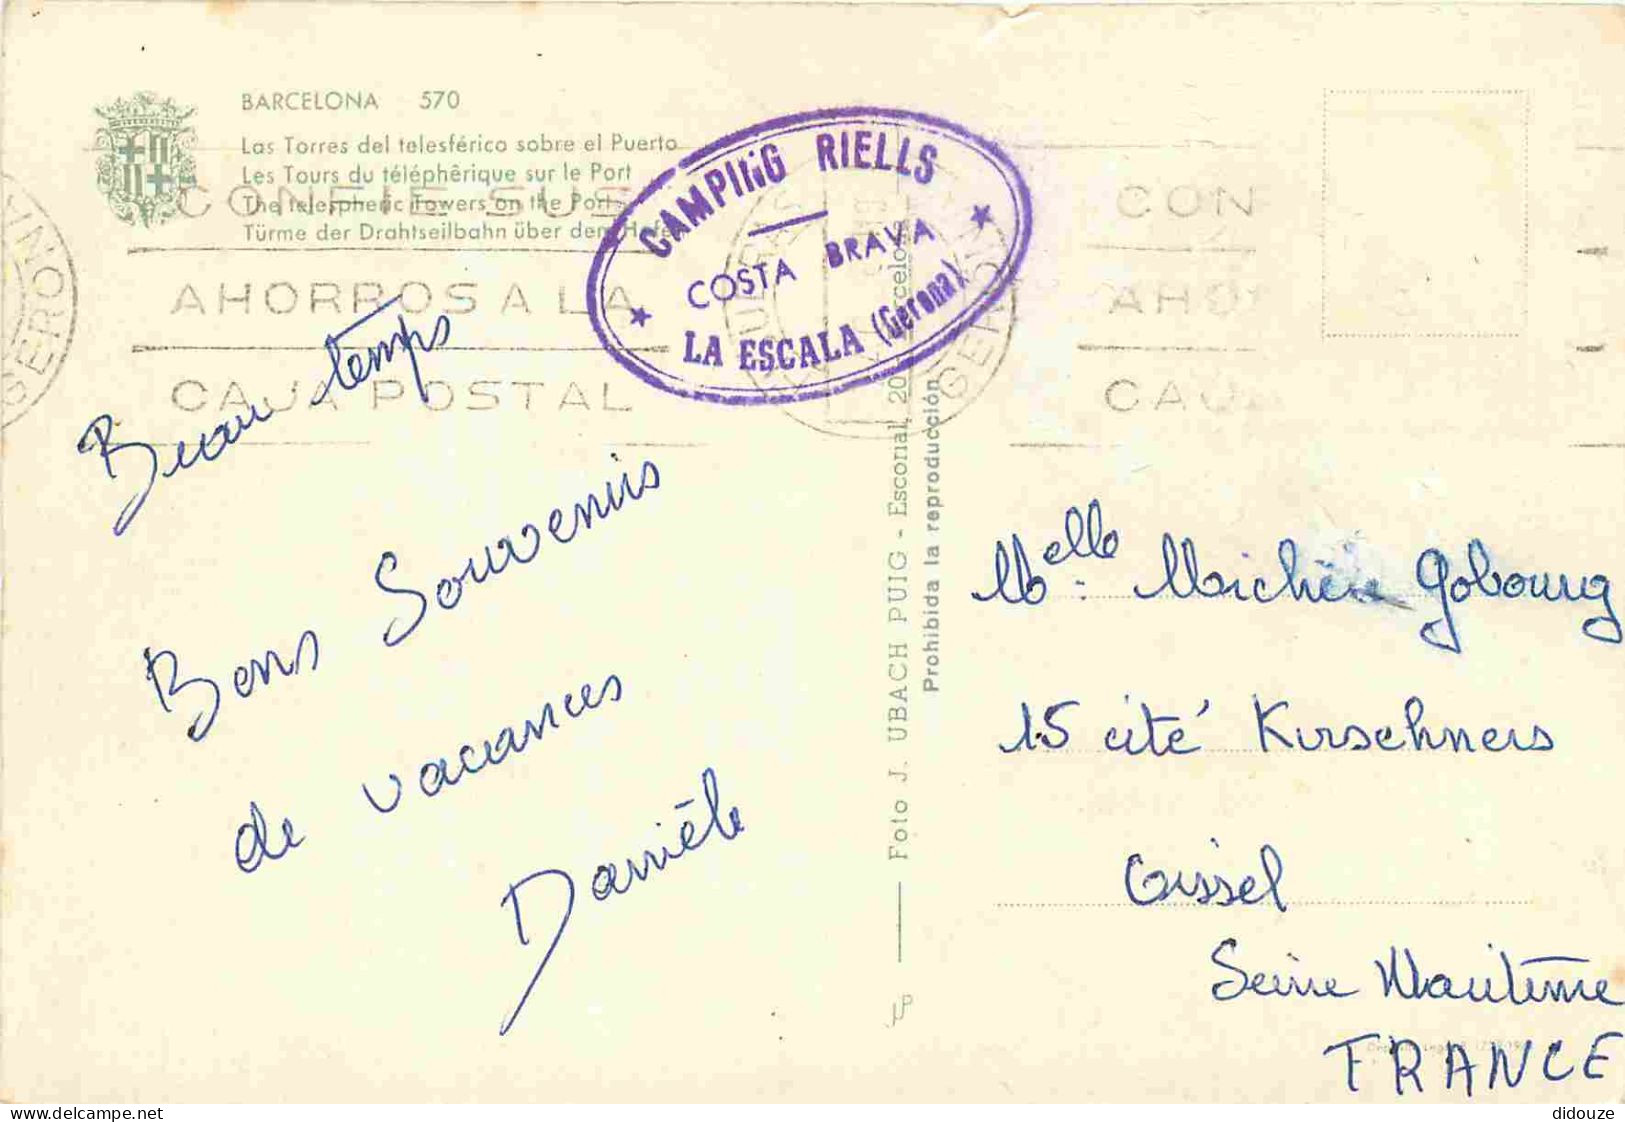 BARCELONA 570
Las Torres del telesférico sobre el Puerto
Les Tours du téléphêrique sur le Port
The telespheric Towers on the Port
Türme der Drahtseilbahn über dem Hafen
CONFIE SUS
AHORROS A LA
CAJA POSTAL
GERONA
CAMPING RIELLS
COSTA BRAVA
LA ESCALA (Gerona)
GERONA
CON
AHO
CAJ
Beau temps
Bons Souvenirs
de vacances
Danièle
Foto J. UBACH PUIG - Esconal, 20 Barcelona
Prohibida la reproducción
Melle Michèle Gobourg
15 cité Kirschners
Oissel
Seine Maritime
FRANCE
didouze